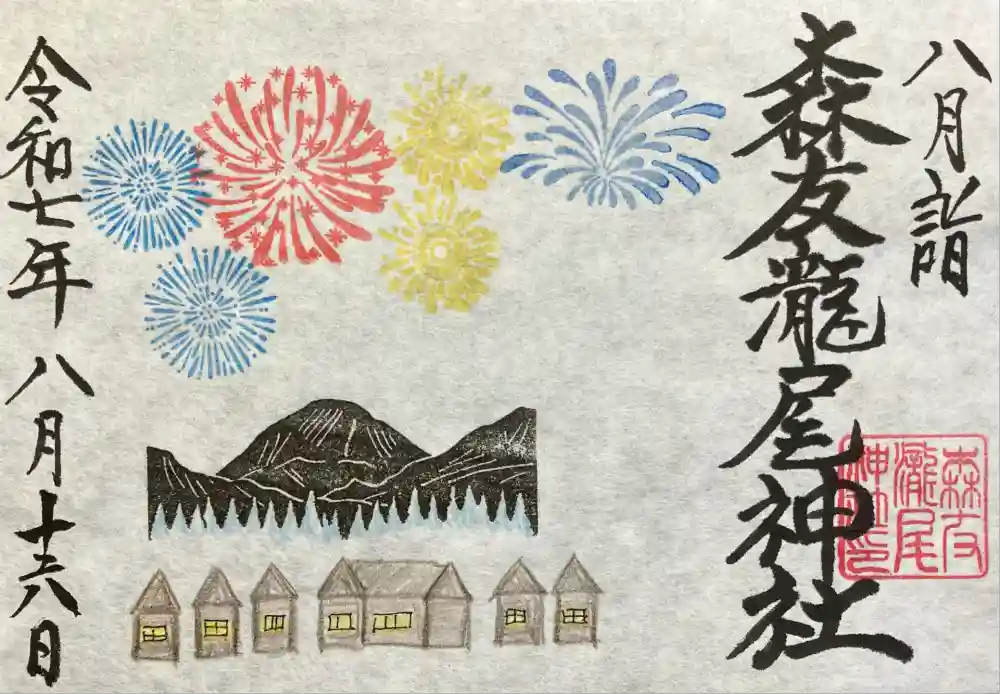 八月詣
森友瀧尾神社
森友
瀧尾
神社印
令和七年 八月十六日